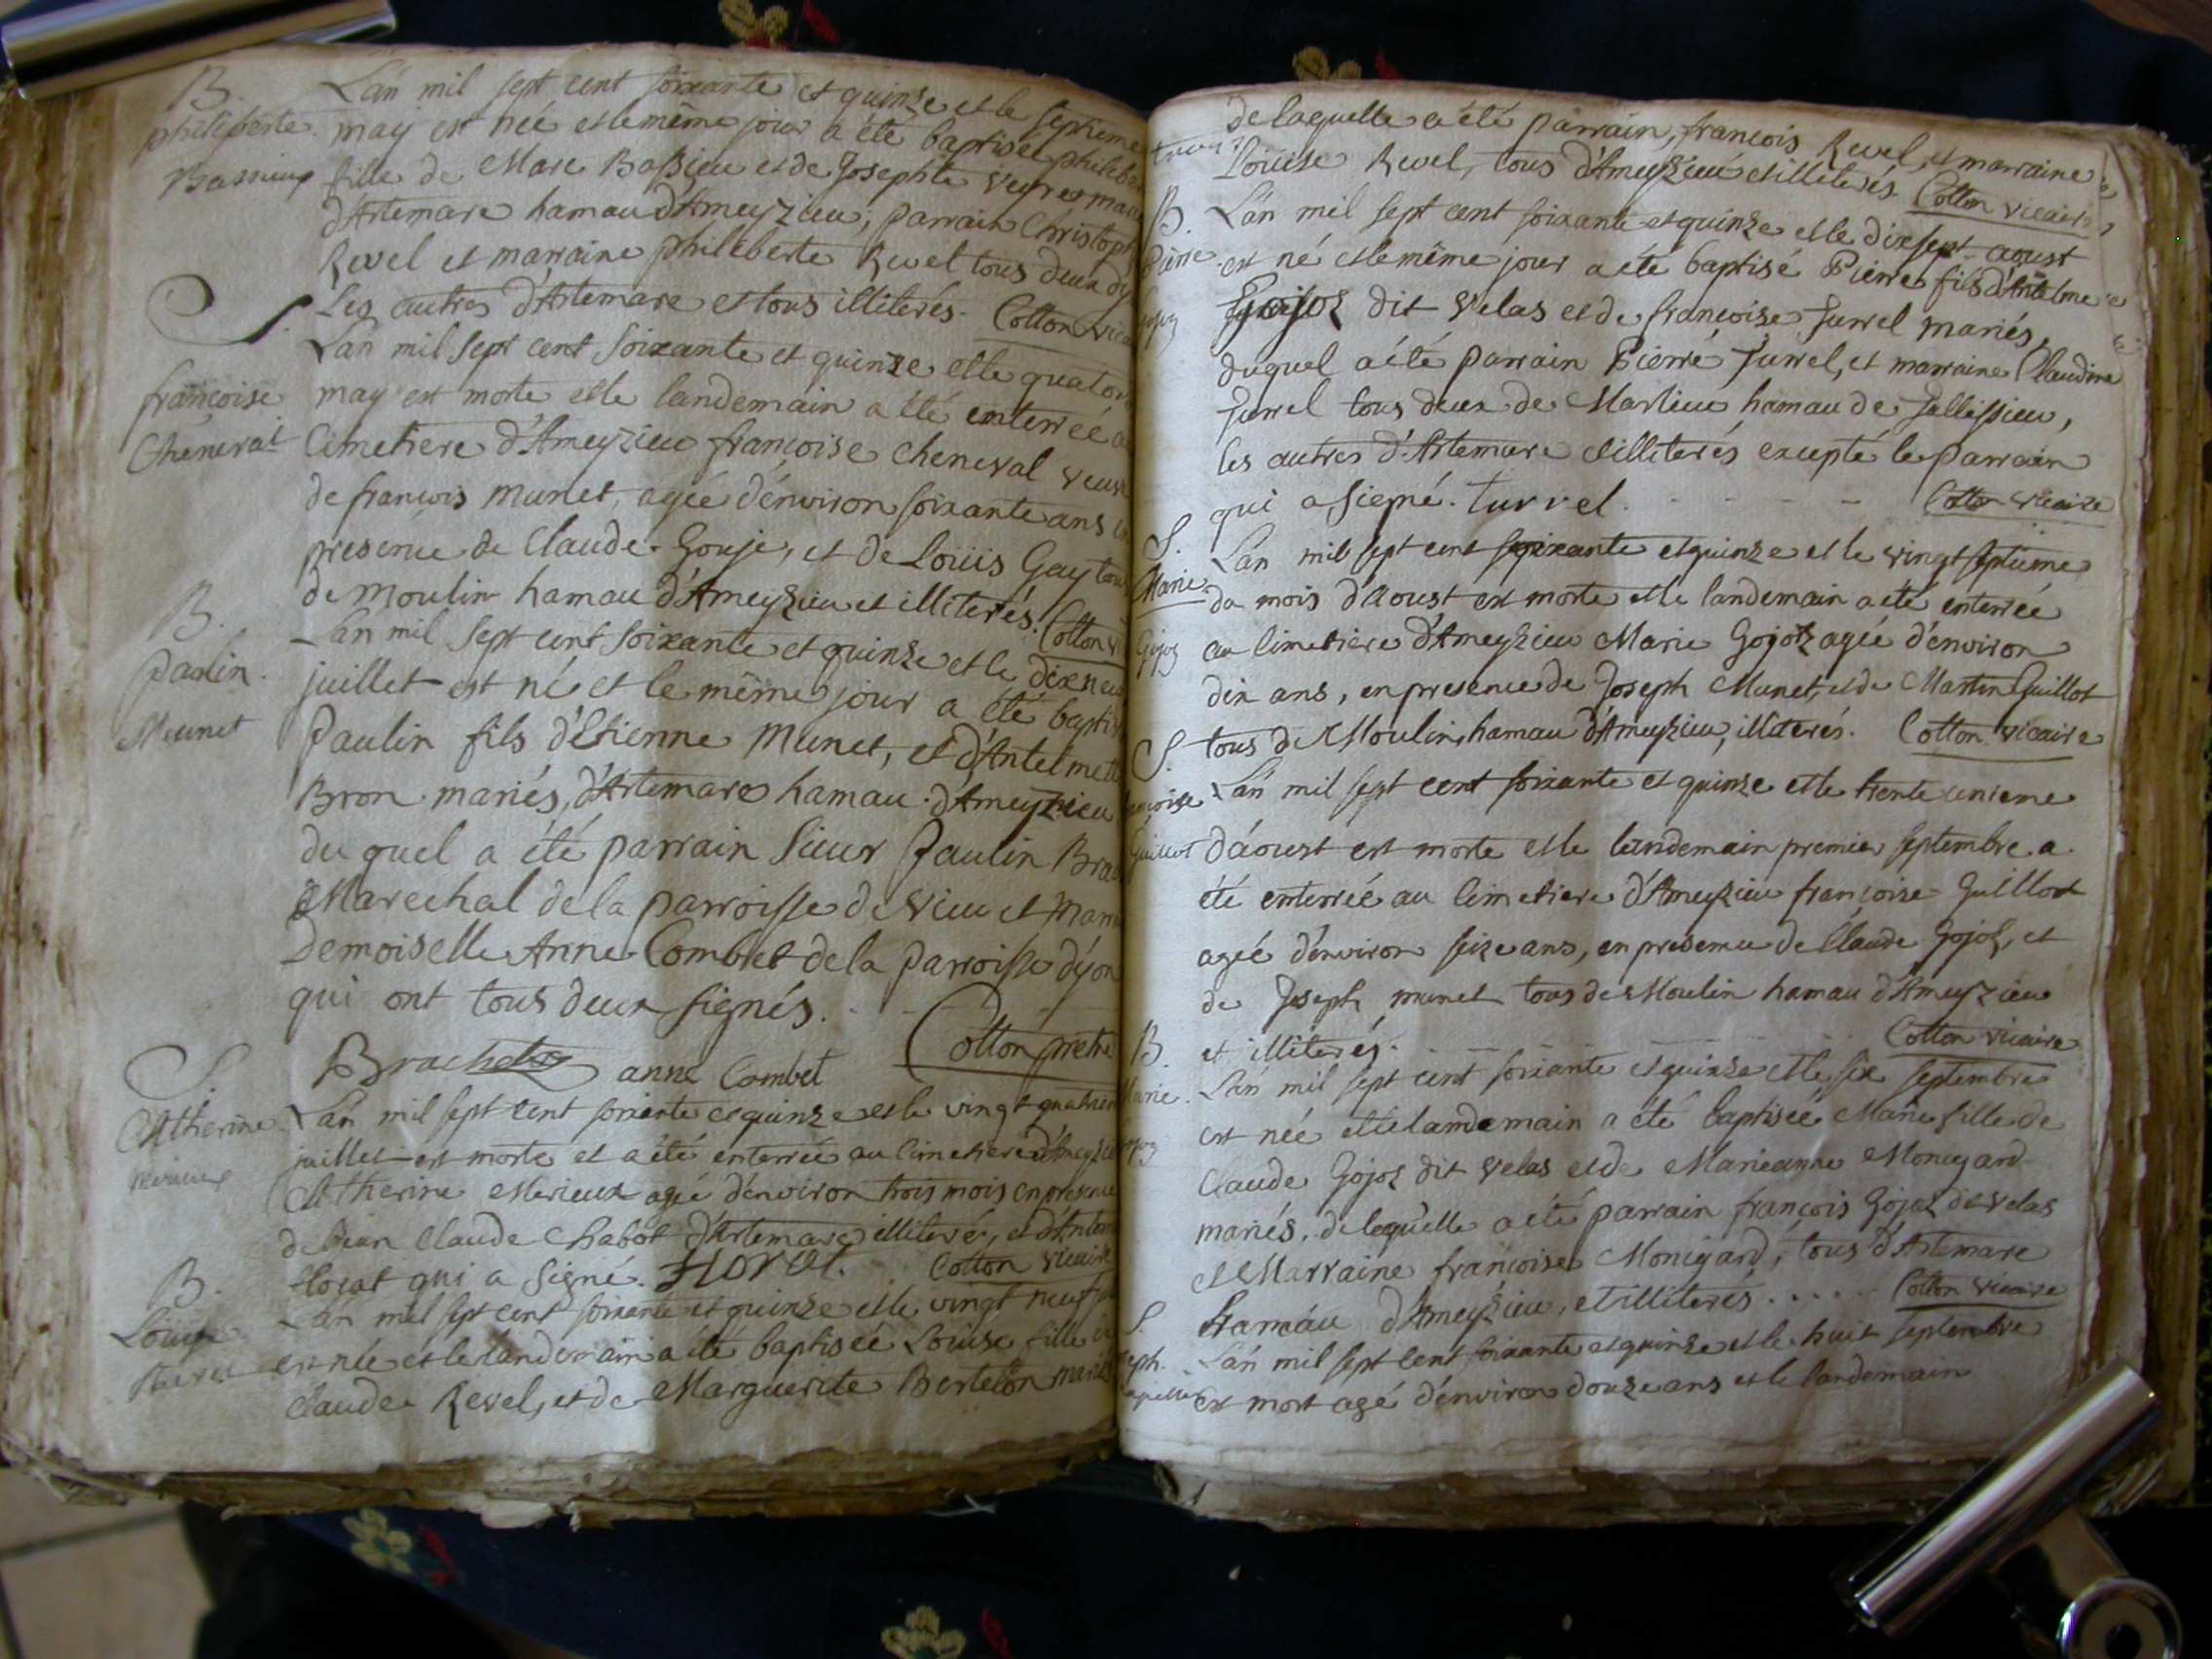 B.
philiberte
Bassieux
L'an mil sept cent soixante et quinze et le septieme
may est née et le même jour a été baptisée philiber
fille de Marc Bassieu et de Josephte veyret mari
d'Artemare hamau d'Ameyzieu, parrain Christoph
Revel et marraine philiberte Revel tous deux d'y
Les autres d'Artemare et tous illiterés. Cotton vica
S.
françoise
Cheneval
L'an mil sept cent soixante et quinze et le quator
may est morte et le landemain a été enterrée a
Cimetiere d'Ameyzieu françoise cheneval veuve
de francois munet, agée d'environ soixante ans
presence de Claude Gouje, et de Loüis Gay tous
de moulin hamau d'Ameyzieu et illiterés. Cotton v
B.
Paulin
Meunet
L'an mil sept cent soixante et quinze et le dixneu
juillet est né et le même jour a été baptis
Paulin fils d'Etienne Munet, et d'Antelmette
Bron mariés, d'Artemare hamau d'Ameyzieu
du quel a été parrain Sieur Paulin Bra
Marechal de la parroisse de vieu et marr
Demoiselle Anne Combet de la parroisse d'yon
qui ont tous deux signés.
Brachet anne Combet Cotton prêtre
S.
Catherine
Merieux
L'an mil sept cent soixante et quinze et le vingt quatriem
juillet est morte et a été enterrée au cimetiere d'Ameyzieu
Catherine Merieux agée d'environ trois mois en presence
de Jean Claude Chabot d'Artemare illiteré, et d'Antoi
florat qui a signé. florat. Cotton vicaire
B.
Louise
Revel
L'an mil sept cent soixante et quinze et le vingt neuf
est née et le landemain a été baptisée Loüise fille de
Claude Revel, et de Marguerite Berteton mariés
de laquelle a été parrain, francois Revel, et marraine
Loüise Revel, tous d'Ameyzieu et illiterés. Cotton vicaire
B.
Pierre
Gojoz
L'an mil sept cent soixante et quinze et le dixsept aoust
est né et le même jour a été baptisé Pierre fils d'Antelme
Gojoz dit velas et de françoise Turrel mariés,
duquel a été parrain Pierre Turrel, et marraine Claudine
Turrel tous deux de Marlieu hamau de Tallissieu,
les autres d'Artemare et illiterés excepté le parrain
qui a signé. turrel. Cotton vicaire
S.
Marie
Gojoz
L'an mil sept cent soixante et quinze et le vingt septieme
du mois d'Aoust est morte et le landemain a été enterrée
au Cimetiere d'Ameyzieu Marie Gojoz agée d'environ
dix ans, en presence de Joseph Munet, et de Martin Guillot
tous de Moulin hamau d'Ameyzieu, illiterés. Cotton vicaire
S.
françoise
Guillot
L'an mil sept cent soixante et quinze et le trente unieme
d'aoust est morte et le landemain premier septembre a
été enterrée au Cimetiere d'Ameyzieu françoise Guillot
agée d'environ seize ans, en presence de Claude Gojoz, et
de Joseph munet tous de Moulin hamau d'Ameyzieu
et illiterés. Cotton vicaire
B.
Marie
Gojoz
L'an mil sept cent soixante et quinze et le six septembre
est née et le landemain a été baptisée Marie fille de
Claude Gojoz dit velas et de Marieanne Monigard
mariés, de lequelle a été parrain françois Gojoz de velas
et Marraine françoise Monigard, tous d'Artemare
Hamau d'Ameyzieu, et illiterés..... Cotton vicaire
S.
L'an mil sept cent soixante et quinze et le huit septembre
est mort agé d'environ douze ans et le landemain